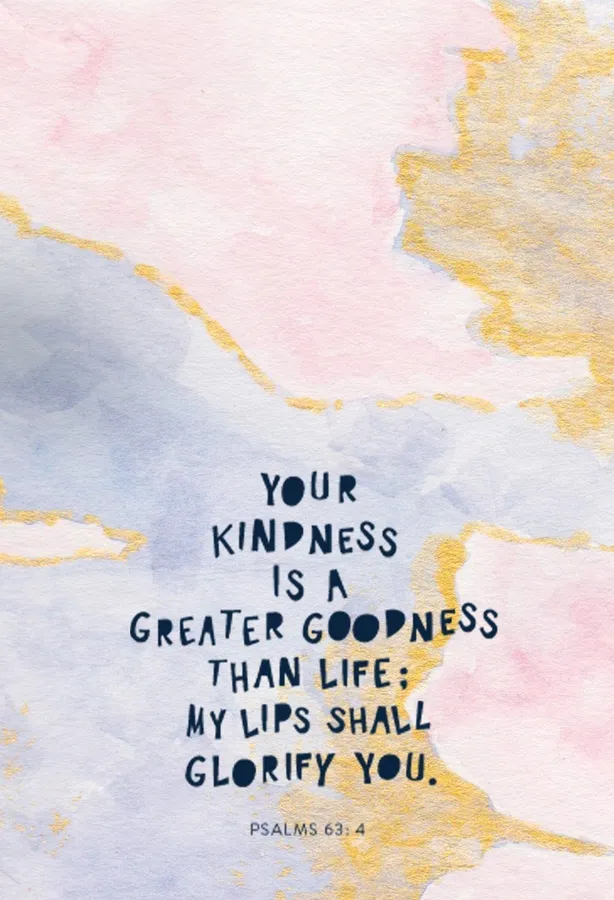 YOUR
KINDNESS
IS A
GREATER GOODNESS
THAN LIFE;
MY LIPS SHALL
GLORIFY YOU.
PSALMS 63: 4